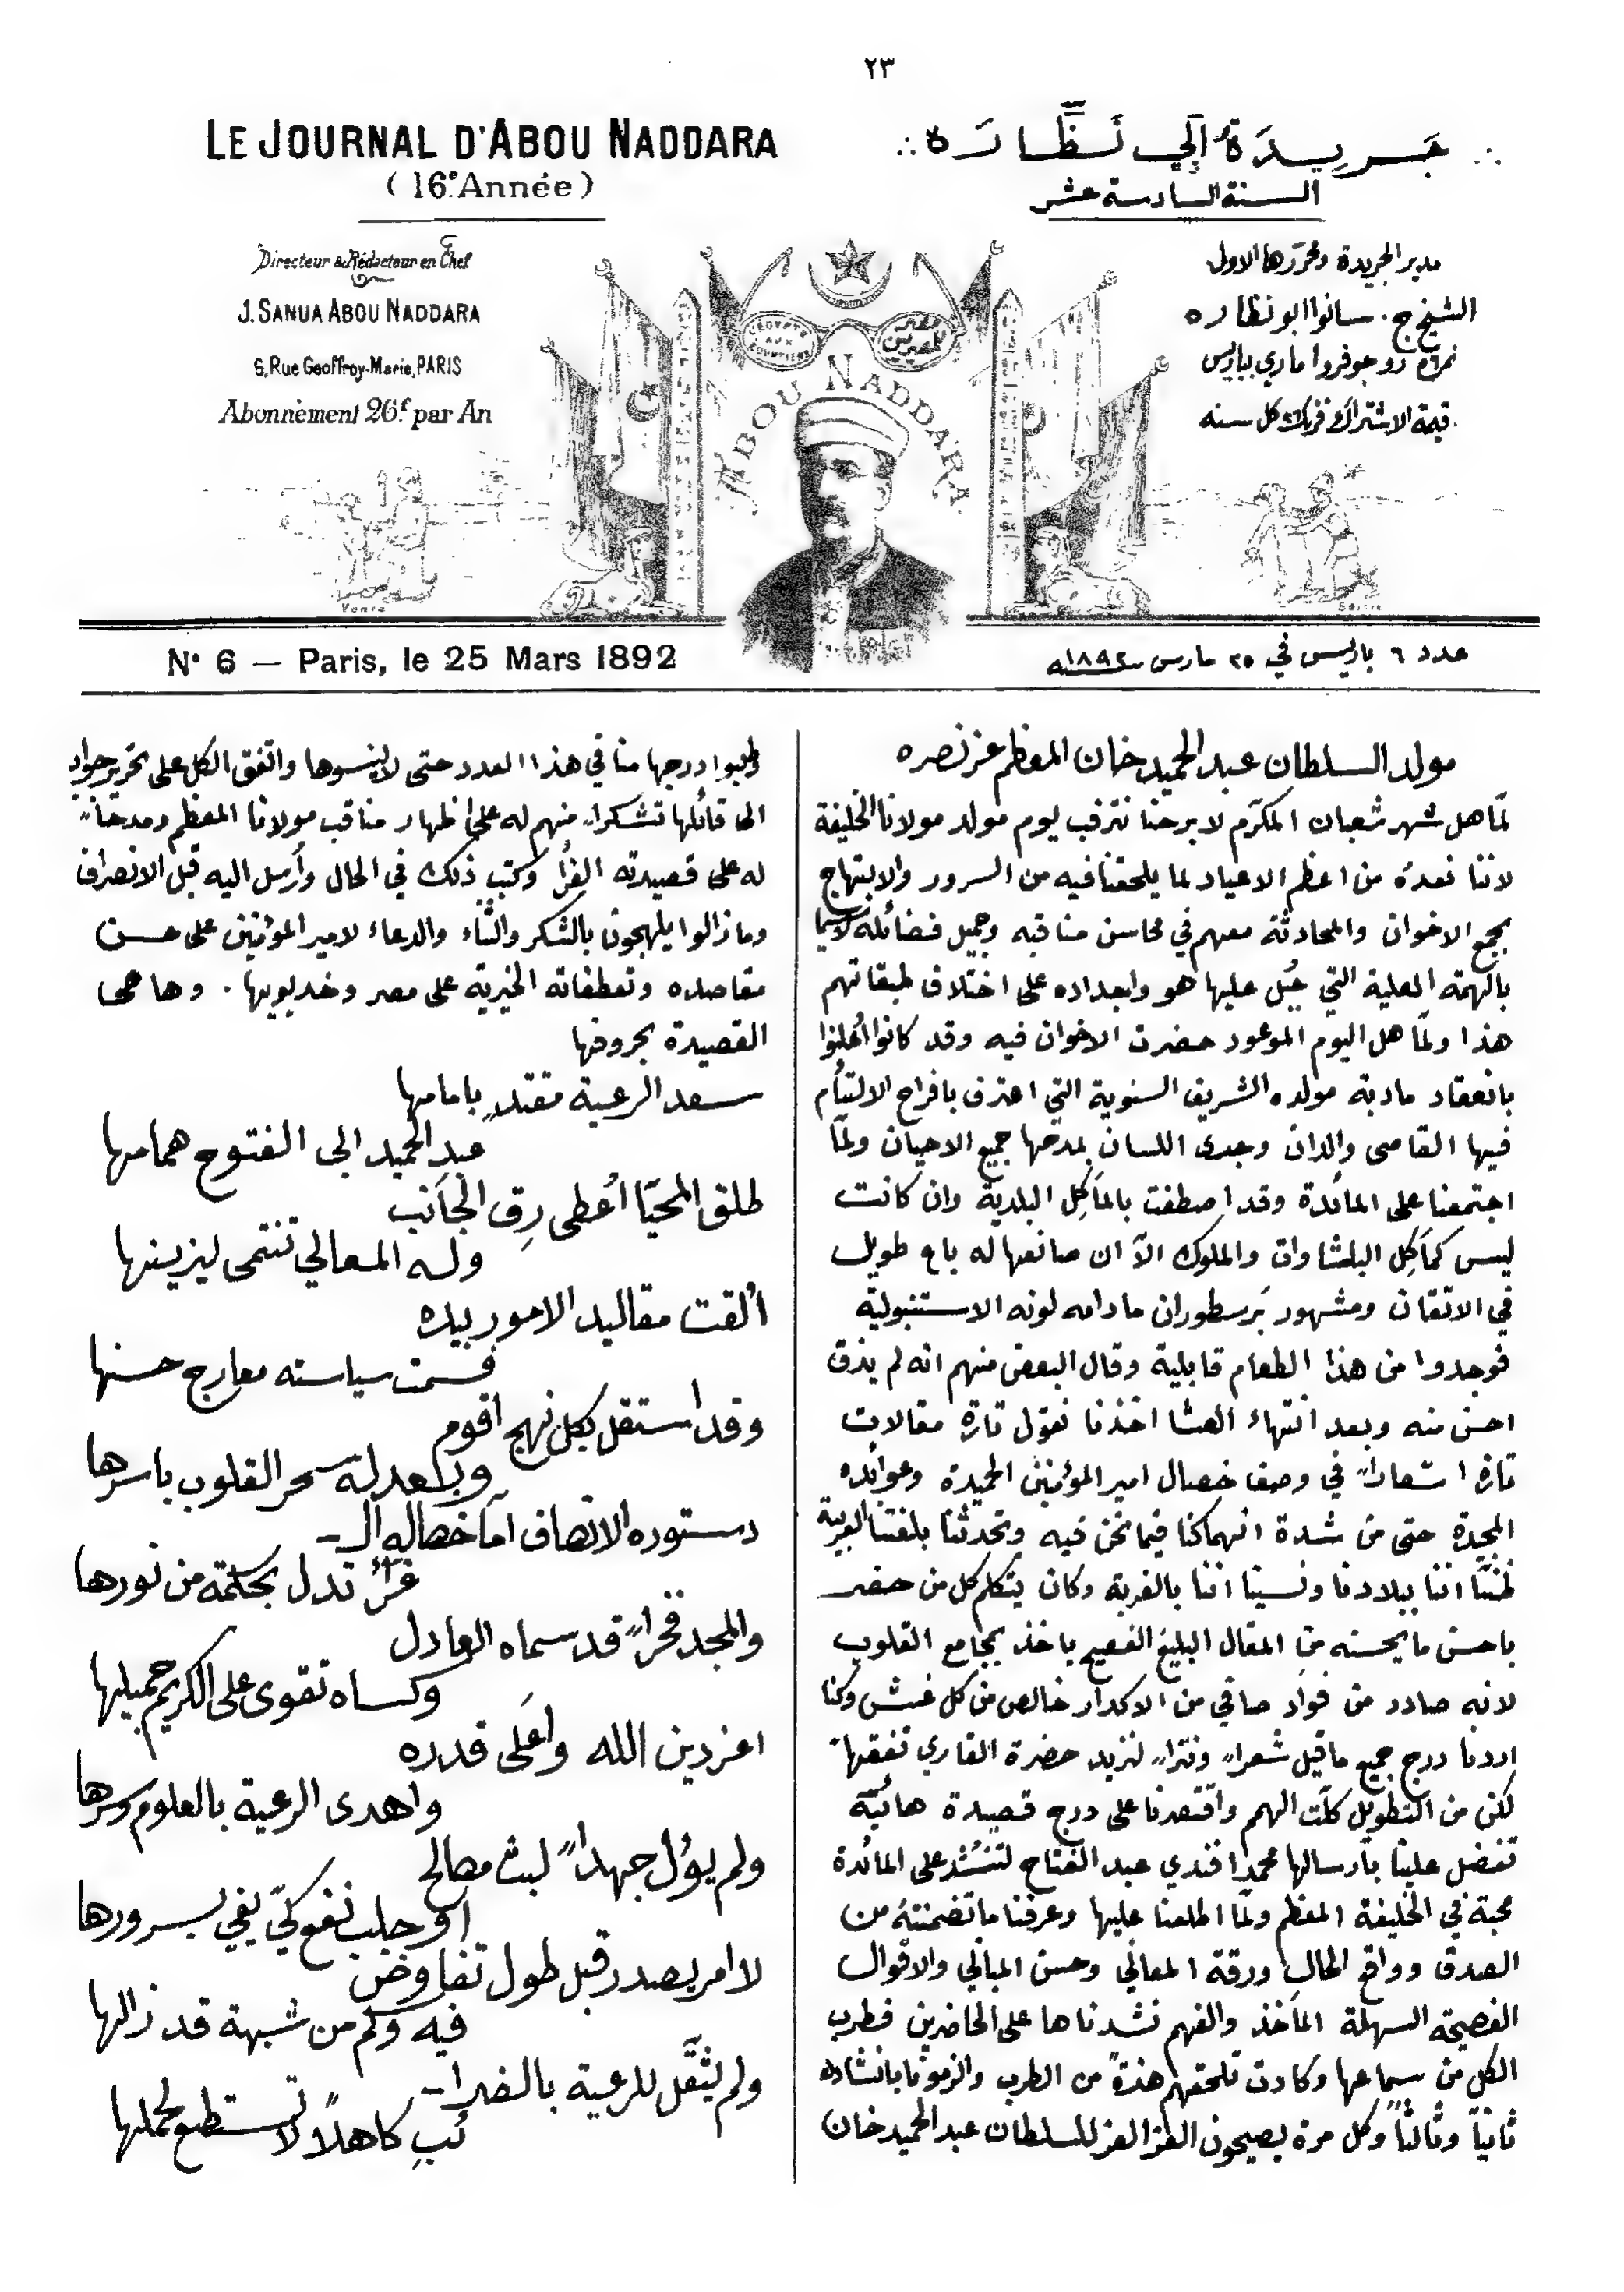 ٢٣
LE JOURNAL D'ABOU NADDARA
(16.e Année)
Directeur & Rédacteur en Chef
J. SANUA ABOU NADDARA
6, Rue Geoffroy-Marie, PARIS
Abonnement 26f. par An
جَريدَةُ أَبِي نَظَّارَه
السنة السادسة عشر
مدير الجريدة ومحررها الاول
الشيخ ج. سانوا ابو نظاره
نمرة ٦ رو جوفروا ماري بباريس
قيمة الاشتراك فرنك كل سنه
L'EGYPTE AUX EGYPTIENS
مصر للمصريين
ABOU NADDARA
No 6 — Paris, le 25 Mars 1892
عدد ٦ باريس في ٢٥ مارس سنة ١٨٩٢
مولد السلطان عبد الحميد خان المعظم عز نصره
لمّا هل شهر شعبان المكرّم لا برحنا نترقب ليوم مولد مولانا الخليفة
لاننا نعدهُ من اعظم الاعياد لما يلحقنا فيه من السرور والابتهاج
بجمع الاخوان والمحادثة معهم في محاسن مناقبه وجميل فضائله لاسيما
بالهمة العلية التي جُبل عليها هو واجداده على اختلاف طبقاتهم
هذا ولمّا هل اليوم الموعود حضرت الاخوان فيه وقد كانوا أُعلنوا
بانعقاد مادبة مولده الشريف السنوية التي اعترف بافراح الالتيأم
فيها القاصى والدان وجدى اللسان بمدحها جميع الاحيان ولمّا
اجتمعنا على المائدة وقد اصطفت بالمآكل البلدية وان كانت
ليس كمآكل الباشاوات والملوك الاّ ان صانعها له باع طويل
في الاتقان ومشهور برسطوران مادامه لونه الاستنبولية
فوجدوا من هذا الطعام قابلية وقال البعض منهم انه لم يذق
احسن منه وبعد انتهاء العشا اخذنا نقول تارة مقالات
تارة اشعاراً في وصف خصال امير المؤمنين الحميدة وعوائده
المجيدة حتى من شدة انهماكنا فيما نحن فيه وتحدثنا بلغتنا العربية
ظننّا اننا ببلادنا ونسينا اننا بالغربة وكان يتكلم كل من حضر
باحسن ما يحسنه من المقال البليغ الفصيح ياخذ بمجامع القلوب
لانه صادر من فواد صافي من الاكدار خالص من كل غش وكنا
اردنا درج جميع ما قيل شعراً ونثراً لنزيد حضرة القاري تفقهاً
لكن من التطويل كلّت الهمم واقتصرنا على درج قصيدة هائيّة
تفضل علينا بارسالها محمد افندي عبد الفتاح لتنشد على المائدة
محبة في الخليفة المعظم ولمّا اطلعنا عليها وعرفنا ما تضمنتهُ من
الصدق وواقع الحال ورقة المعاني وحسن المباني والاقوال
الفصيحة السهلة المأخذ والفهم نشدناها على الحاضرين فطرب
الكل من سماعها وكادت تلحقهم هذة من الطرب والزمونا بانشاده
ثانياً وثالثاً وكل مرة يصيحون العز العز للسلطان عبد الحميد خان
وطلبوا درجها منا في هذا العدد حتى لا ينسوها واتفق الكل على تحرير جواب
الى قائلها تشكراً منهم له على اظهار مناقب مولانا المعظم ومدحاً
له على قصيدته الغرّا وكتب ذلك في الحال وأرسل اليه قبل الانصراف
وما زالوا يلهجون بالشكر والثناء والدعاء لامير المؤمنين على حسن
مقاصده وتعطفاته الخيرية على مصر وخديويها. وها هى
القصيدة بحروفها
سعد الرعية مقتدٍ بامامها
عبد الحميد ابى الفتوح همامها
طلق المحيّا أعطى رِق الجانب
وله المعالي تنتمى ليزينها
ألقت مقاليد الامور بيده
فسمت سياسته معارج حسنها
وقد استقل بكل نهج اقوم
وبعدله سحر القلوب باسرها
دستوره الانصاف اما خصاله الـ
غرّ تدل بحكمة من نورها
والمجد فخراً قد سماه العادل
وكساه تقوى على الكريم جميلها
اعز دين الله واَعَلى قدره
واهدى الرعية بالعلوم وسرها
ولم يؤل جهداً لبث مصالح
او جلب نفع كيّ يفي بسرورها
لا امر يصدر قبل طول تفاوض
فيه وكم من شبهة قد زالها
ولم يُثقَّل للرعية بالضرا
ئب كاهلاً لا تستطيع لحملها